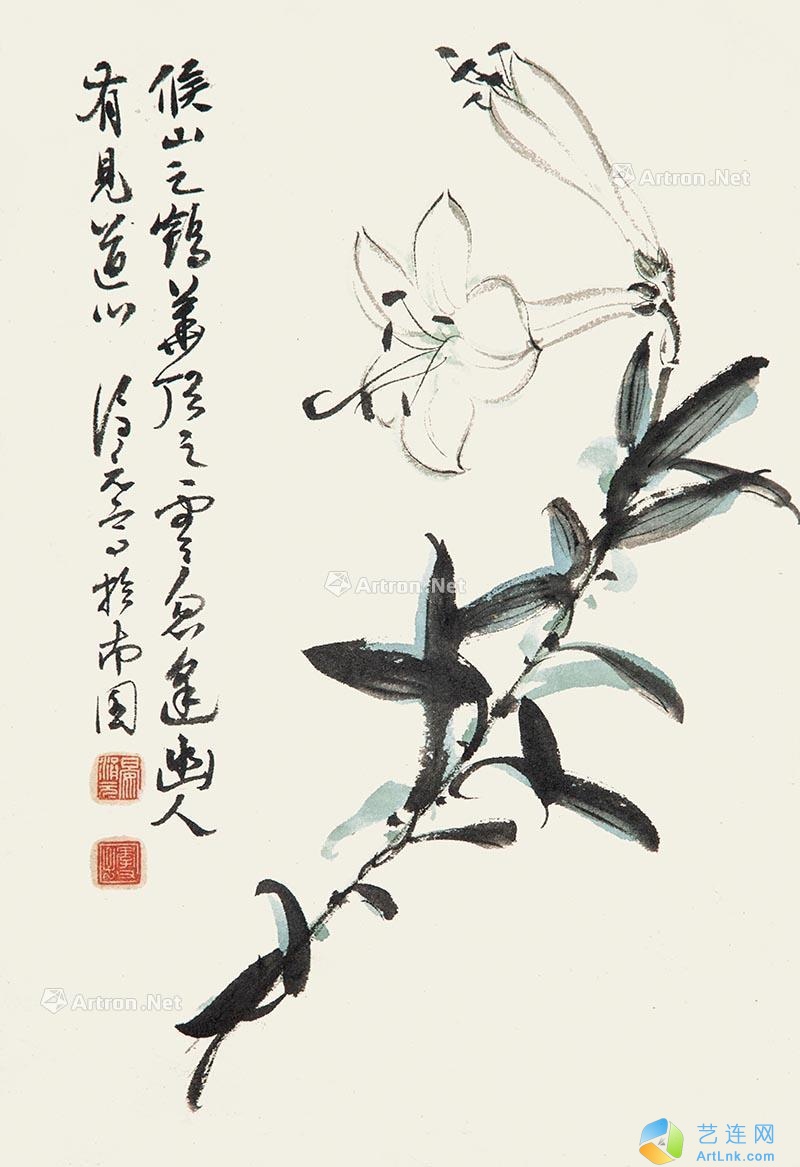 候山之鶴華頂之雲忽逢幽人
有見道心 濟元寫於南園
Artron.Net
Artron.Net
Artron.Net
艺连网
ArtLnk.com